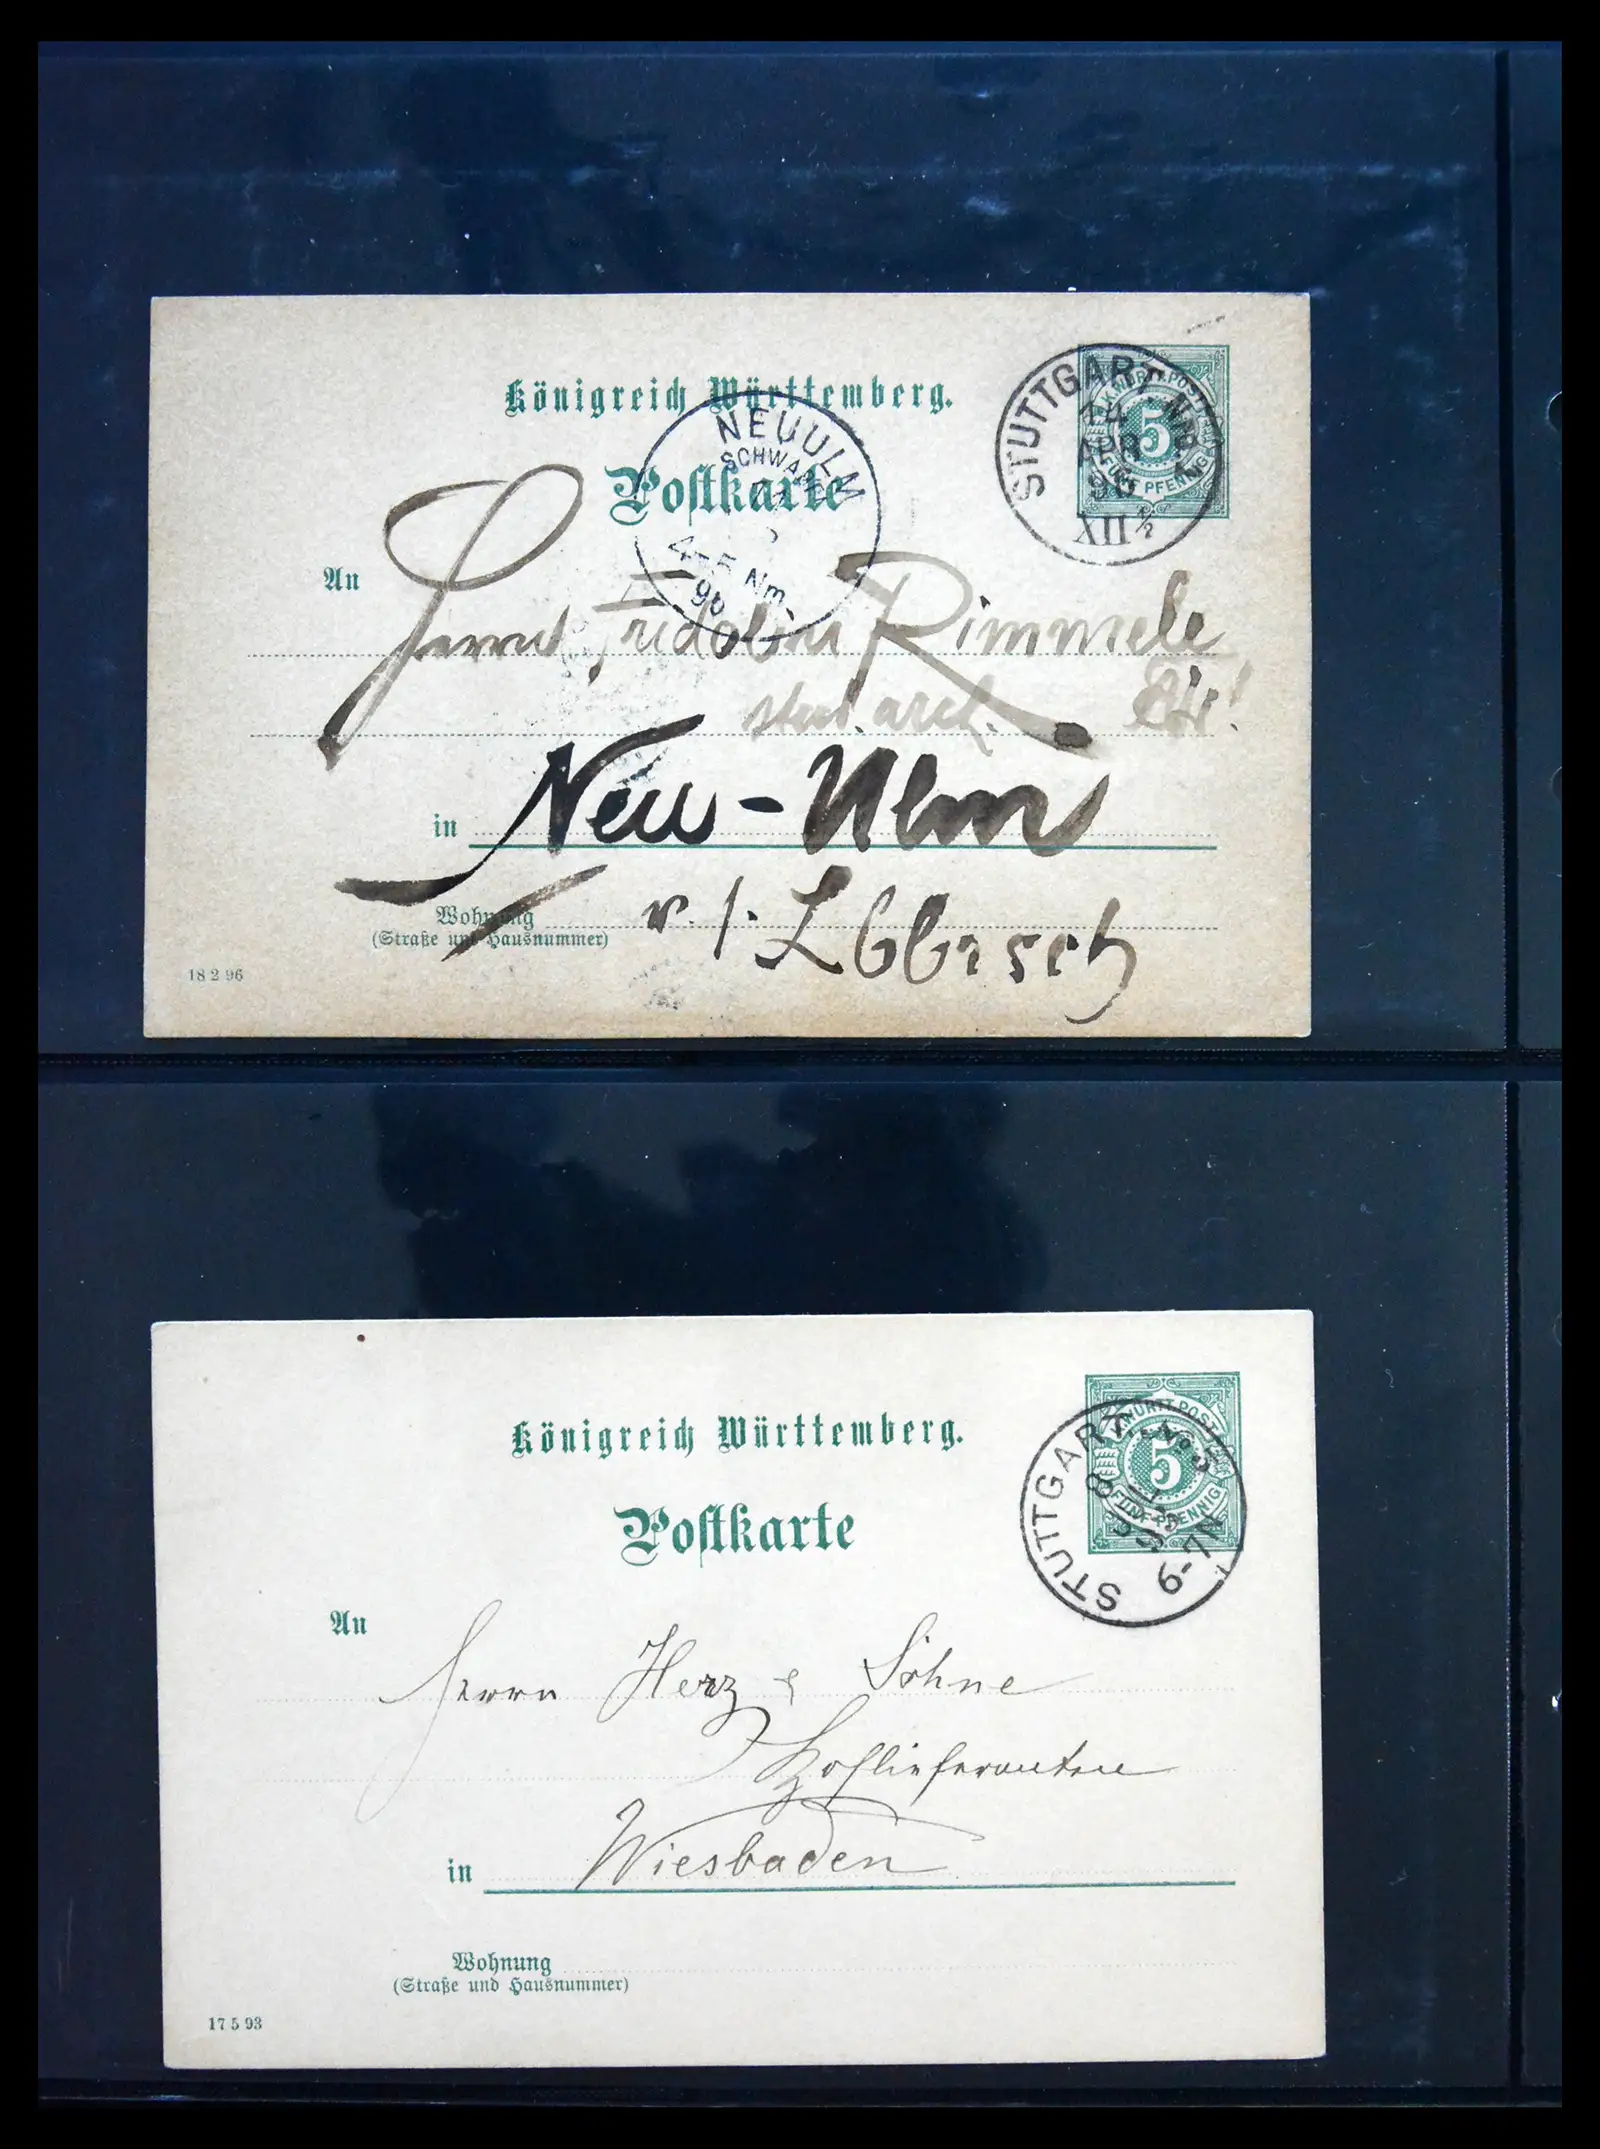 Königreich Württemberg.
Postkarte
K. WÜRTT. POST
5
FÜNF PFENNIG
STUTTGART No.
14
APR
96
XII ½
NEUULM
SCHWABEN
4-5 Nm.
96
An
Herrn Fridolin Rimmele
stud. arch.
in Neu-Ulm
Wohnung
(Straße und Hausnummer)
18 2 96
Königreich Württemberg.
Postkarte
K. WÜRTT. POST
5
FÜNF PFENNIG
STUTTGART No. 5
8
93
6-7 N
An
Herrn Herz & Söhne
Hoflieferanten
in Wiesbaden
Wohnung
(Straße und Hausnummer)
17 5 93